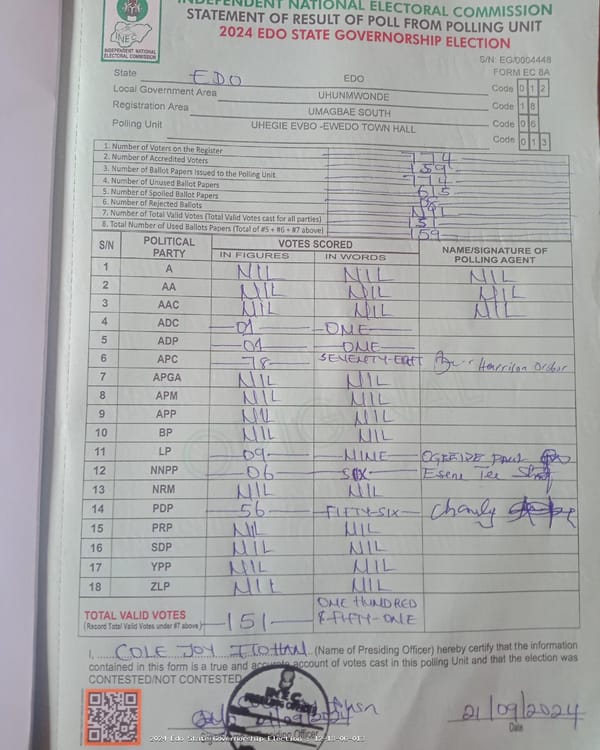 INDEPENDENT NATIONAL ELECTORAL COMMISSION
STATEMENT OF RESULT OF POLL FROM POLLING UNIT
2024 EDO STATE GOVERNORSHIP ELECTION
INEC
INDEPENDENT NATIONAL
ELECTORAL COMMISSION
S/N: EG/0004448
FORM EC 8A
State EDO EDO Code 0 1 2
Local Government Area UHUNMWONDE Code 1 8
Registration Area UMAGBAE SOUTH Code 0 6
Polling Unit UHEGIE EVBO -EWEDO TOWN HALL Code 0 1 3
1. Number of Voters on the Register 774
2. Number of Accredited Voters 159
3. Number of Ballot Papers Issued to the Polling Unit 774
4. Number of Unused Ballot Papers 615
5. Number of Spoiled Ballot Papers
6. Number of Rejected Ballots
7. Number of Total Valid Votes (Total Valid Votes cast for all parties) 151
8. Total Number of Used Ballots Papers (Total of #5 + #6 + #7 above) 159
S/N POLITICAL PARTY VOTES SCORED NAME/SIGNATURE OF POLLING AGENT
IN FIGURES IN WORDS
1 A NIL NIL NIL
2 AA NIL NIL NIL
3 AAC NIL NIL NIL
4 ADC 01 ONE
5 ADP 01 ONE
6 APC 78 Harrison
7 APGA NIL NIL
8 APM NIL NIL
9 APP NIL NIL
10 BP NIL NIL
11 LP 09 NINE
12 NNPP 06 SIX
13 NRM NIL NIL
14 PDP 56 FIFTY-SIX
15 PRP NIL NIL
16 SDP NIL NIL
17 YPP NIL NIL
18 ZLP NIL NIL
TOTAL VALID VOTES 151 ONE HUNDRED & FIFTY-ONE
(Record Total Valid Votes under #7 above)
I, COLE JOY (Name of Presiding Officer) hereby certify that the information
contained in this form is a true and accurate account of votes cast in this polling Unit and that the election was
CONTESTED/NOT CONTESTED
21/09/2024
21/09/2024
Date
2024 Edo State Governorship Election - 12-18-06-013